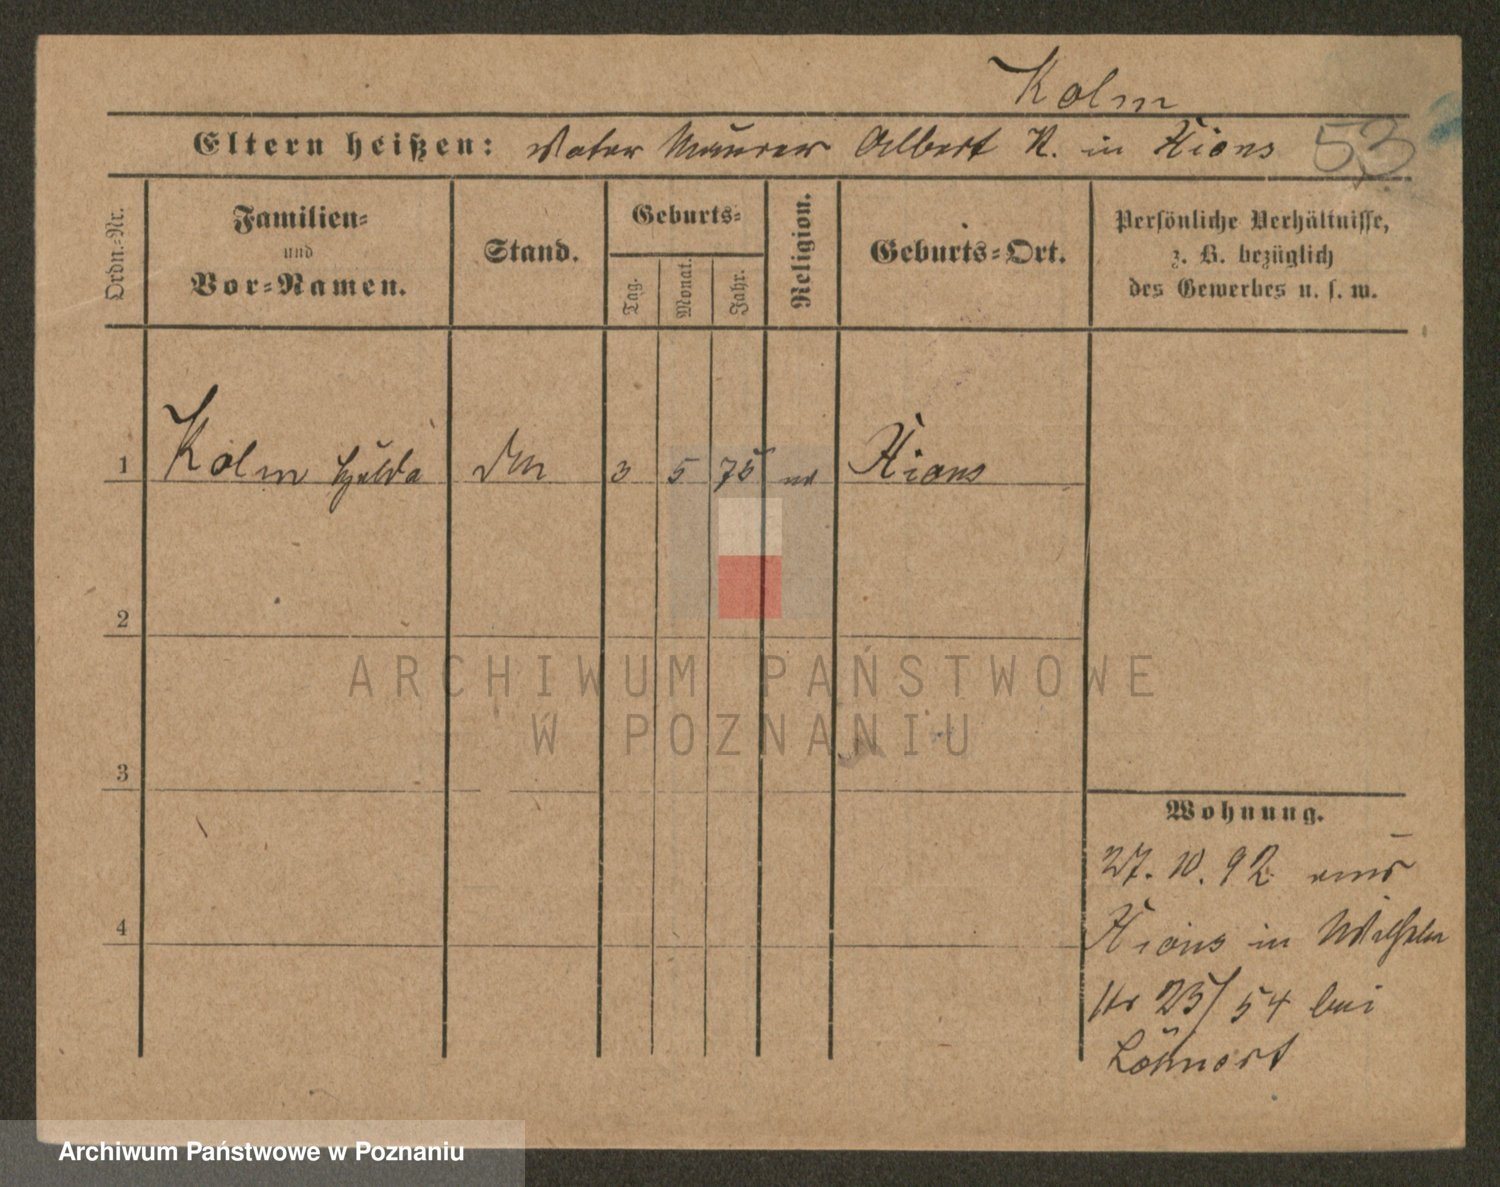 Kolm
Eltern heißen: Vater Maurer Albert K. in Xions 53
Ordn.-Nr.
Familien-
und
Vor-Namen.
Stand.
Geburts-
Tag.
Monat.
Jahr.
Religion.
Geburts-Ort.
Persönliche Verhältnisse,
z. B. bezüglich
des Gewerbes u. s. w.
1 Kolm Hulda 3 5 75 Xions
2
3
4
Wohnung.
27. 10. 92 aus
Xions in Wilhelm
Str 25/54 bei
Löhnert
ARCHIWUM PAŃSTWOWE
W POZNANIU
Archiwum Państwowe w Poznaniu